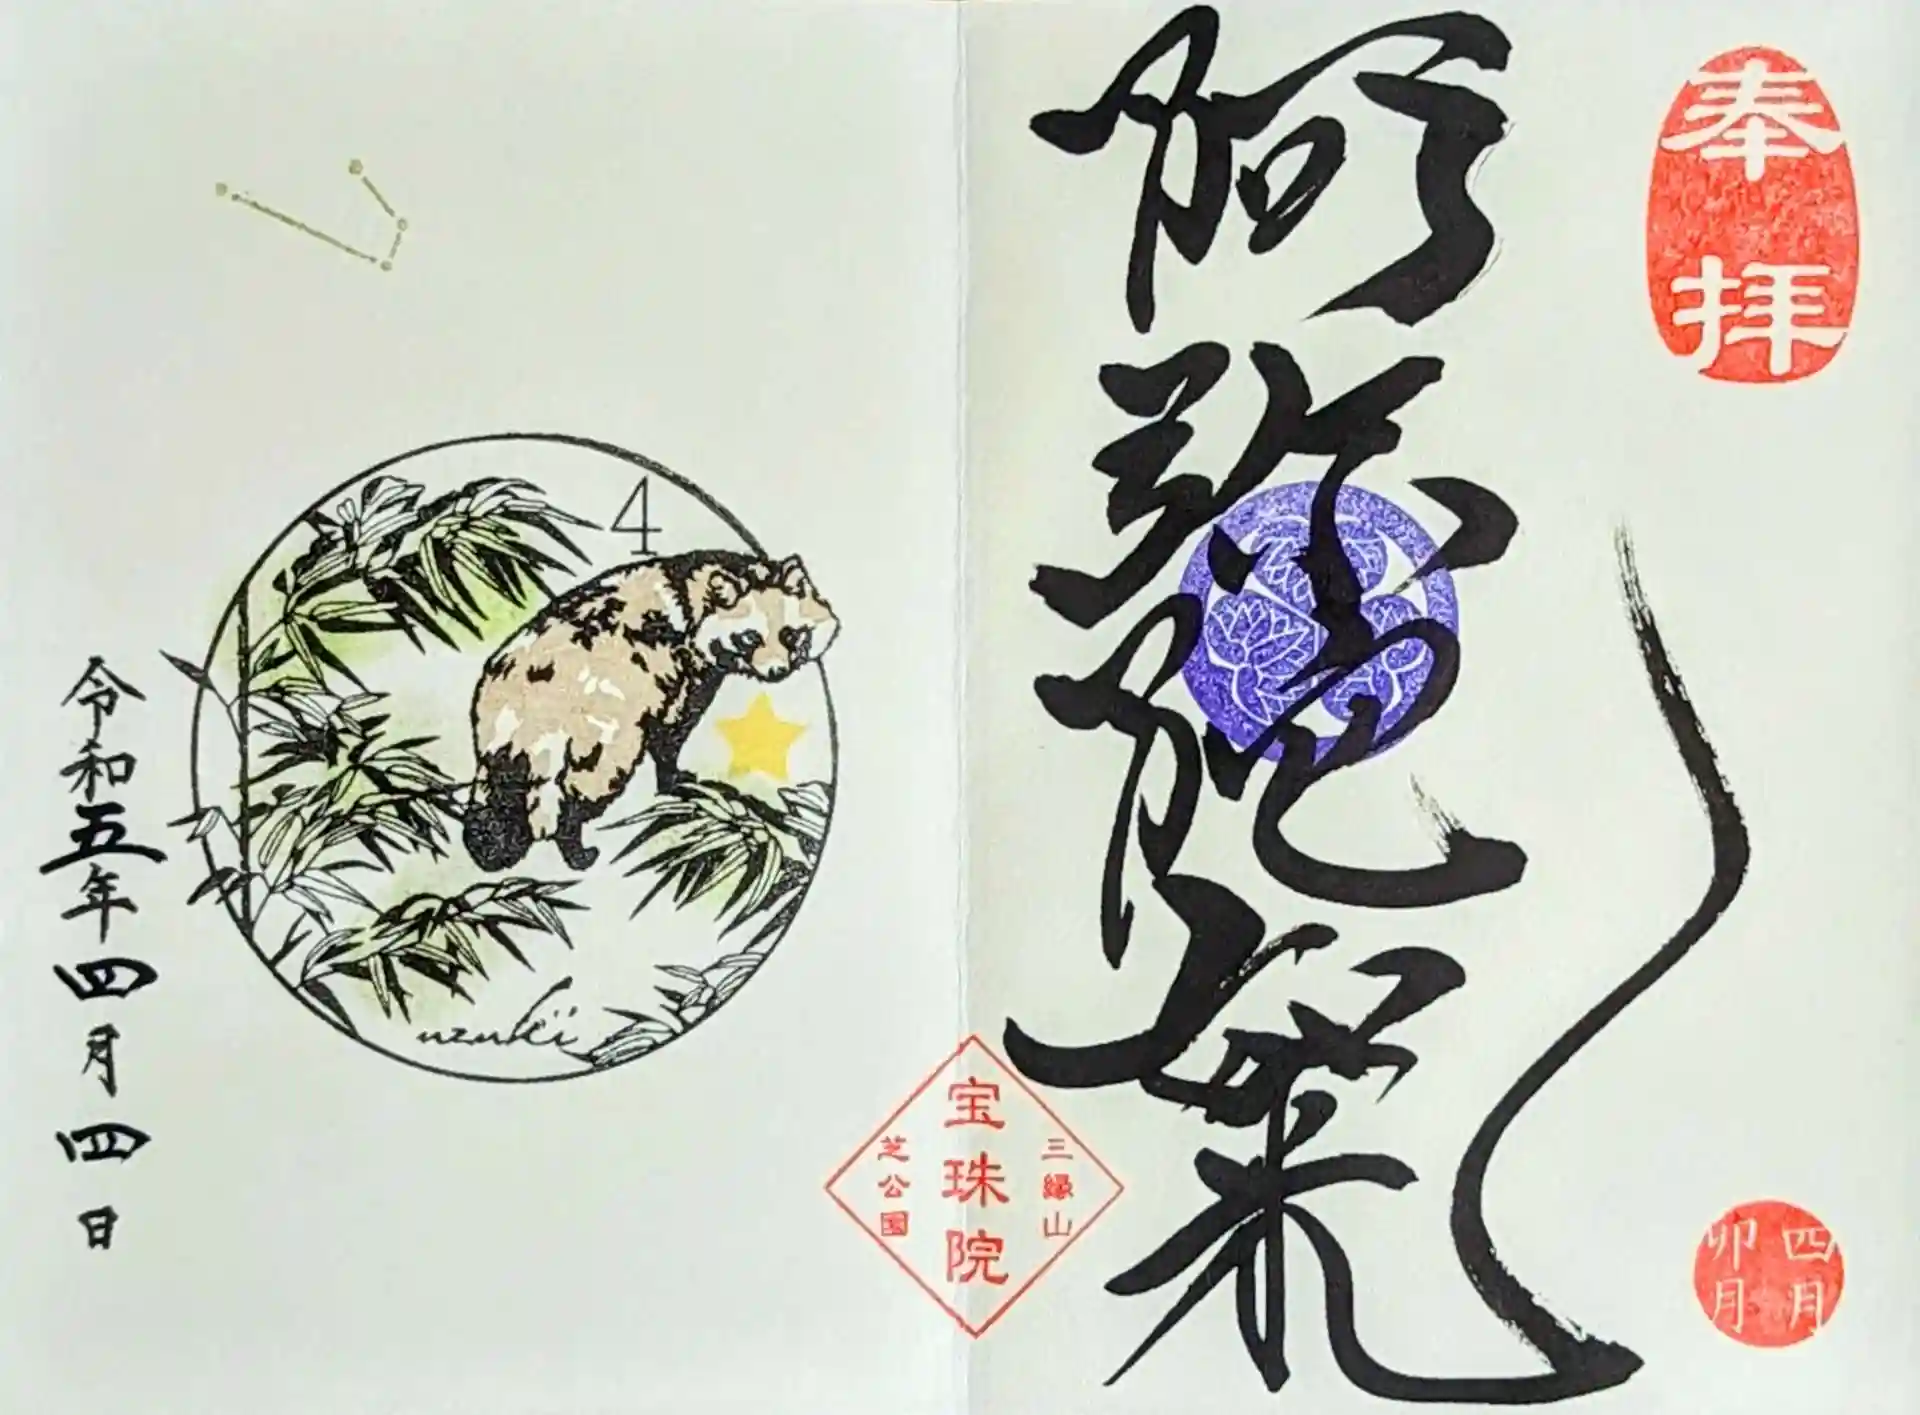 奉拝
四月
卯月
阿弥陀如来
三縁山
宝珠院
芝公園
4
uzuki
令和五年四月四日